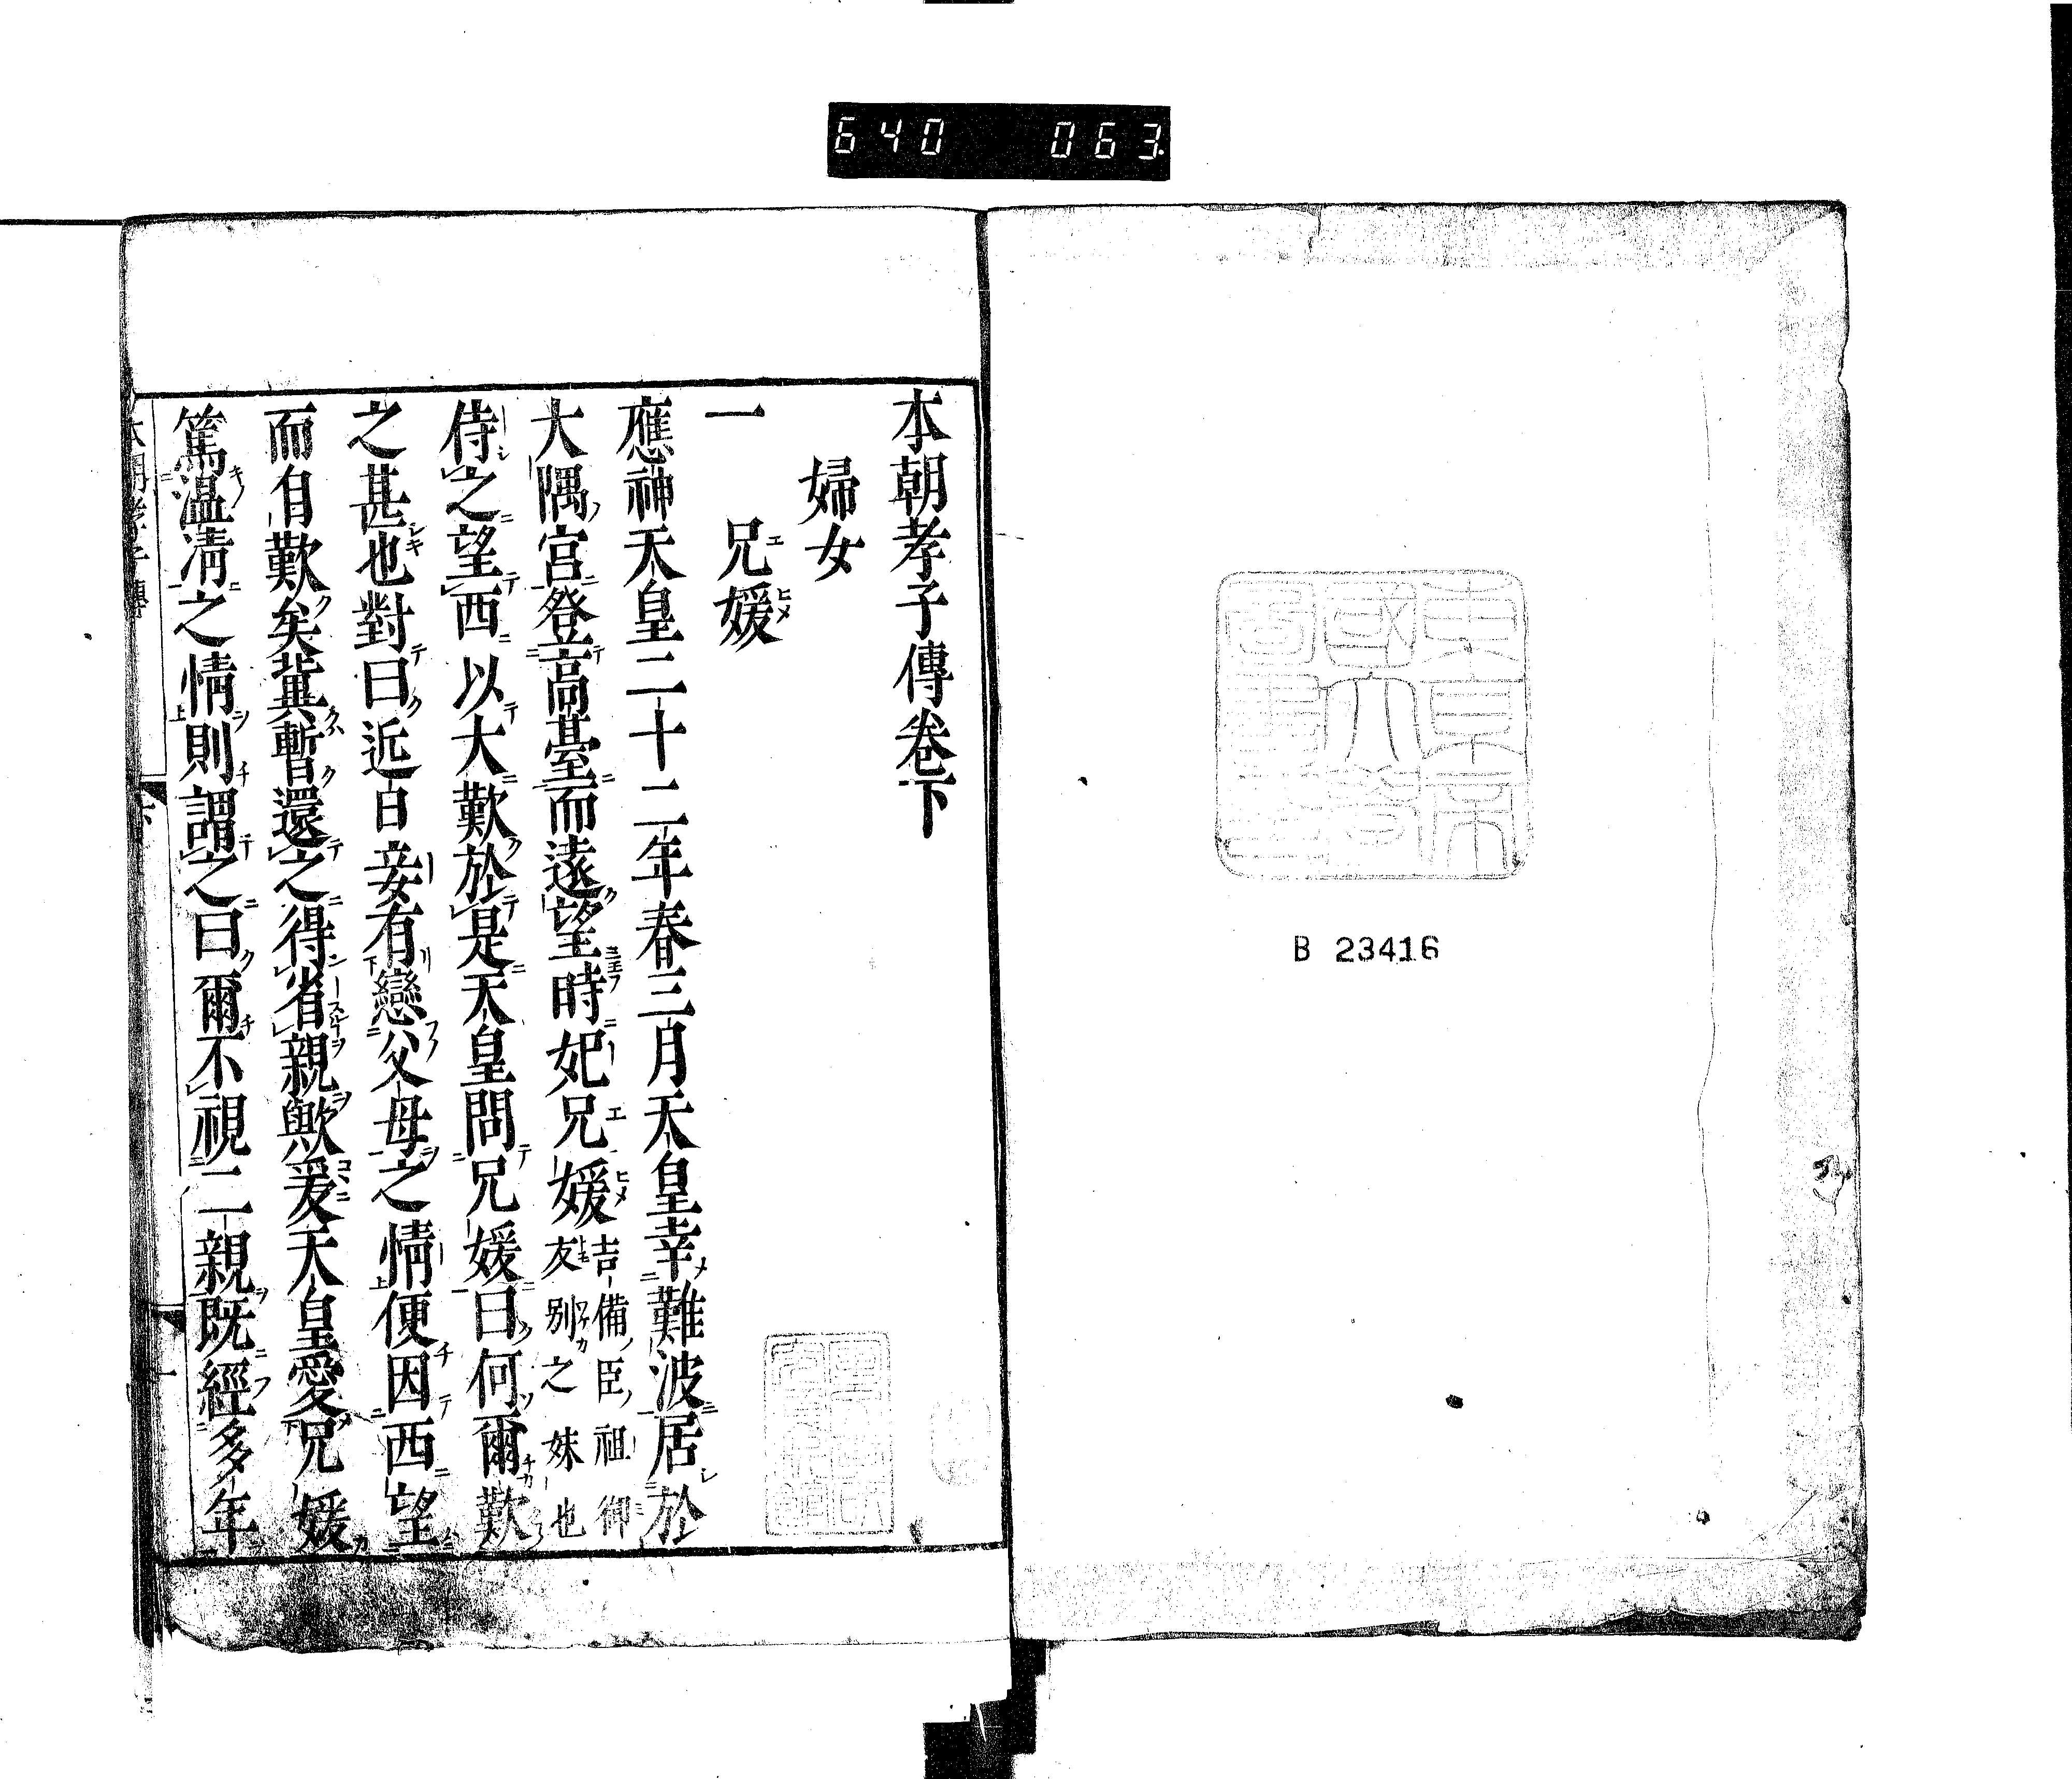 640 063
東京帝
國大學
圖書
B 23416
本朝孝子傳卷下
婦女
一 兄媛
應神天皇二十二年春三月天皇幸難波居於
大隅宮登高臺而遠望時妃兄媛吉備臣祖御友別之妹也
侍之望西以大歎於是天皇問兄媛曰何爾歎
之甚也對曰近日妾有戀父母之情便因西望
而自歎矣冀暫還之得省親歟爰天皇愛兄媛
篤溫凊之情則謂之曰爾不視二親既經多年
本朝孝子傳 下 一